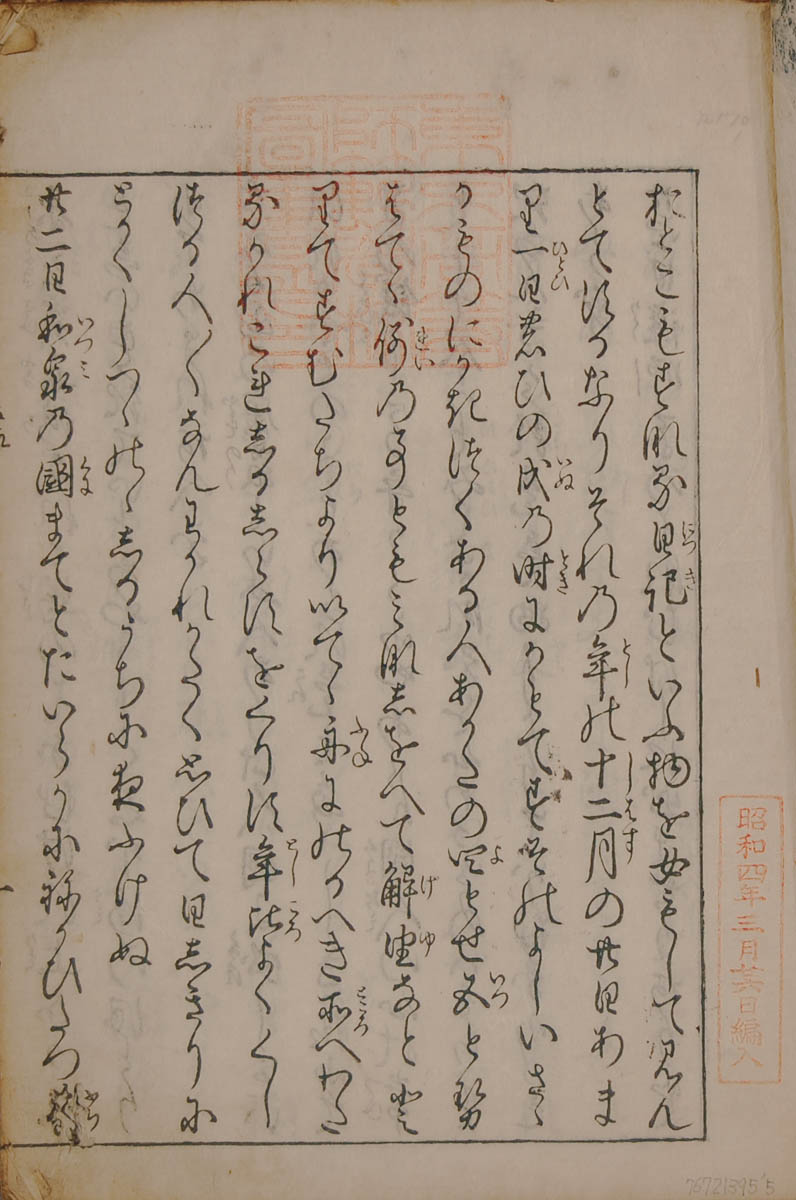 昭和四年三月廿六日編入
おとこもすなる日記といふ物を女もして見ん
とてするなりそれの年の十二月の廿日あま
り一日の日の戌の時にかとてすそのよしいさゝ
かものにかきつくある人あかたの四とせ五とせ
はてゝ例の事ともみなしをへて解由なとと
りてすむたちよりいてゝ舟にのるへき所へわた
るかれこれしるしらすをくりす年比よくくし
つる人〱なんわかれかたく思ひて日しきりに
とかくしつゝのゝしるうちに夜ふけぬ
廿二日和泉の國まてとたいらかにねかひたつ藤